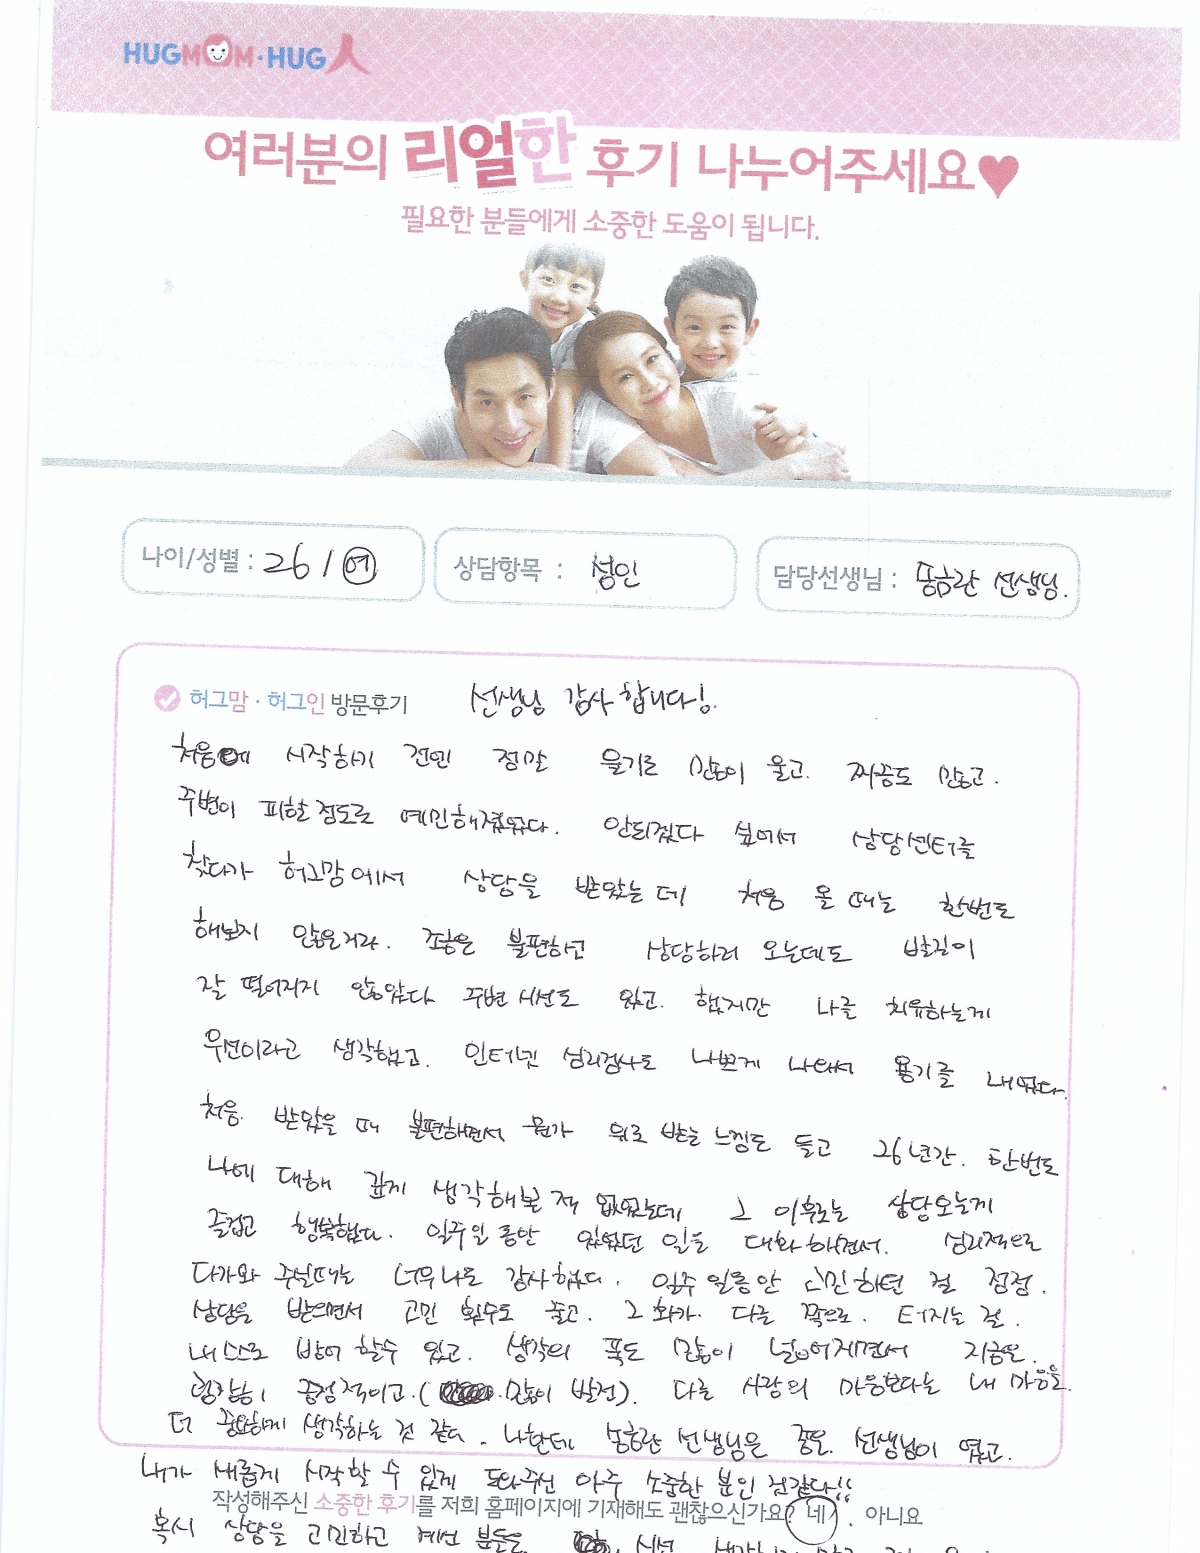 HUGMOM·HUG人
여러분의 리얼한 후기 나누어주세요♥
필요한 분들에게 소중한 도움이 됩니다.
나이/성별 : 26 / 여
상담항목 : 성인
담당선생님 : 선생님.
허그맘·허그인 방문후기 선생님 감사합니다!.
처음에 시작하기 전엔 정말 울기도 많이 울고. 짜증도 많고.
주변이 피할정도로 예민해졌었다. 안되겠다 싶어서 상담센터를
찾다가 허그맘에서 상담을 받았는데 처음 올 때는 한번도
해보지 않은거라. 조금은 불편하고 상담하러 오는데도 발길이
잘 떨어지지 않았다 주변시선도 있고. 했지만 나를 치유하는게
우선이라고 생각했고. 인터넷 심리검사도 나쁘게 나와서 용기를 내었다.
처음. 받았을 때 불편하면서 뭔가 위로 받는 느낌도 들고 26년간. 한번도
나에 대해 깊게 생각해본 적 없었는데 그 이후로는 상담오는게
즐겁고 행복했다. 일주일 동안 있었던 일을 대화하면서. 심리적으로
다가와 주실때는 너무나도 감사했다. 일주일동안 고민하던 걸 점점.
상담을 받으면서 고민 횟수도 줄고. 그 화가. 다른 쪽으로. 터지는 걸.
내 스스로 방어 할수 있고. 생각의 폭도 많이 넓어지면서 지금은.
굉장히 긍정적이고.( 많이 발전). 다른 사람의 마음보다는 내 마음을.
더 중요하게 생각하는 것 같다. 나한테 선생님은 좋은. 선생님이 였고.
내가 새롭게 시작할 수 있게 도와주신 아주 소중한 분인 것같다!!
작성해주신 소중한 후기를 저희 홈페이지에 기재해도 괜찮으신가요? 네 . 아니요
혹시 상담을 고민하고 계신 분들은 시선